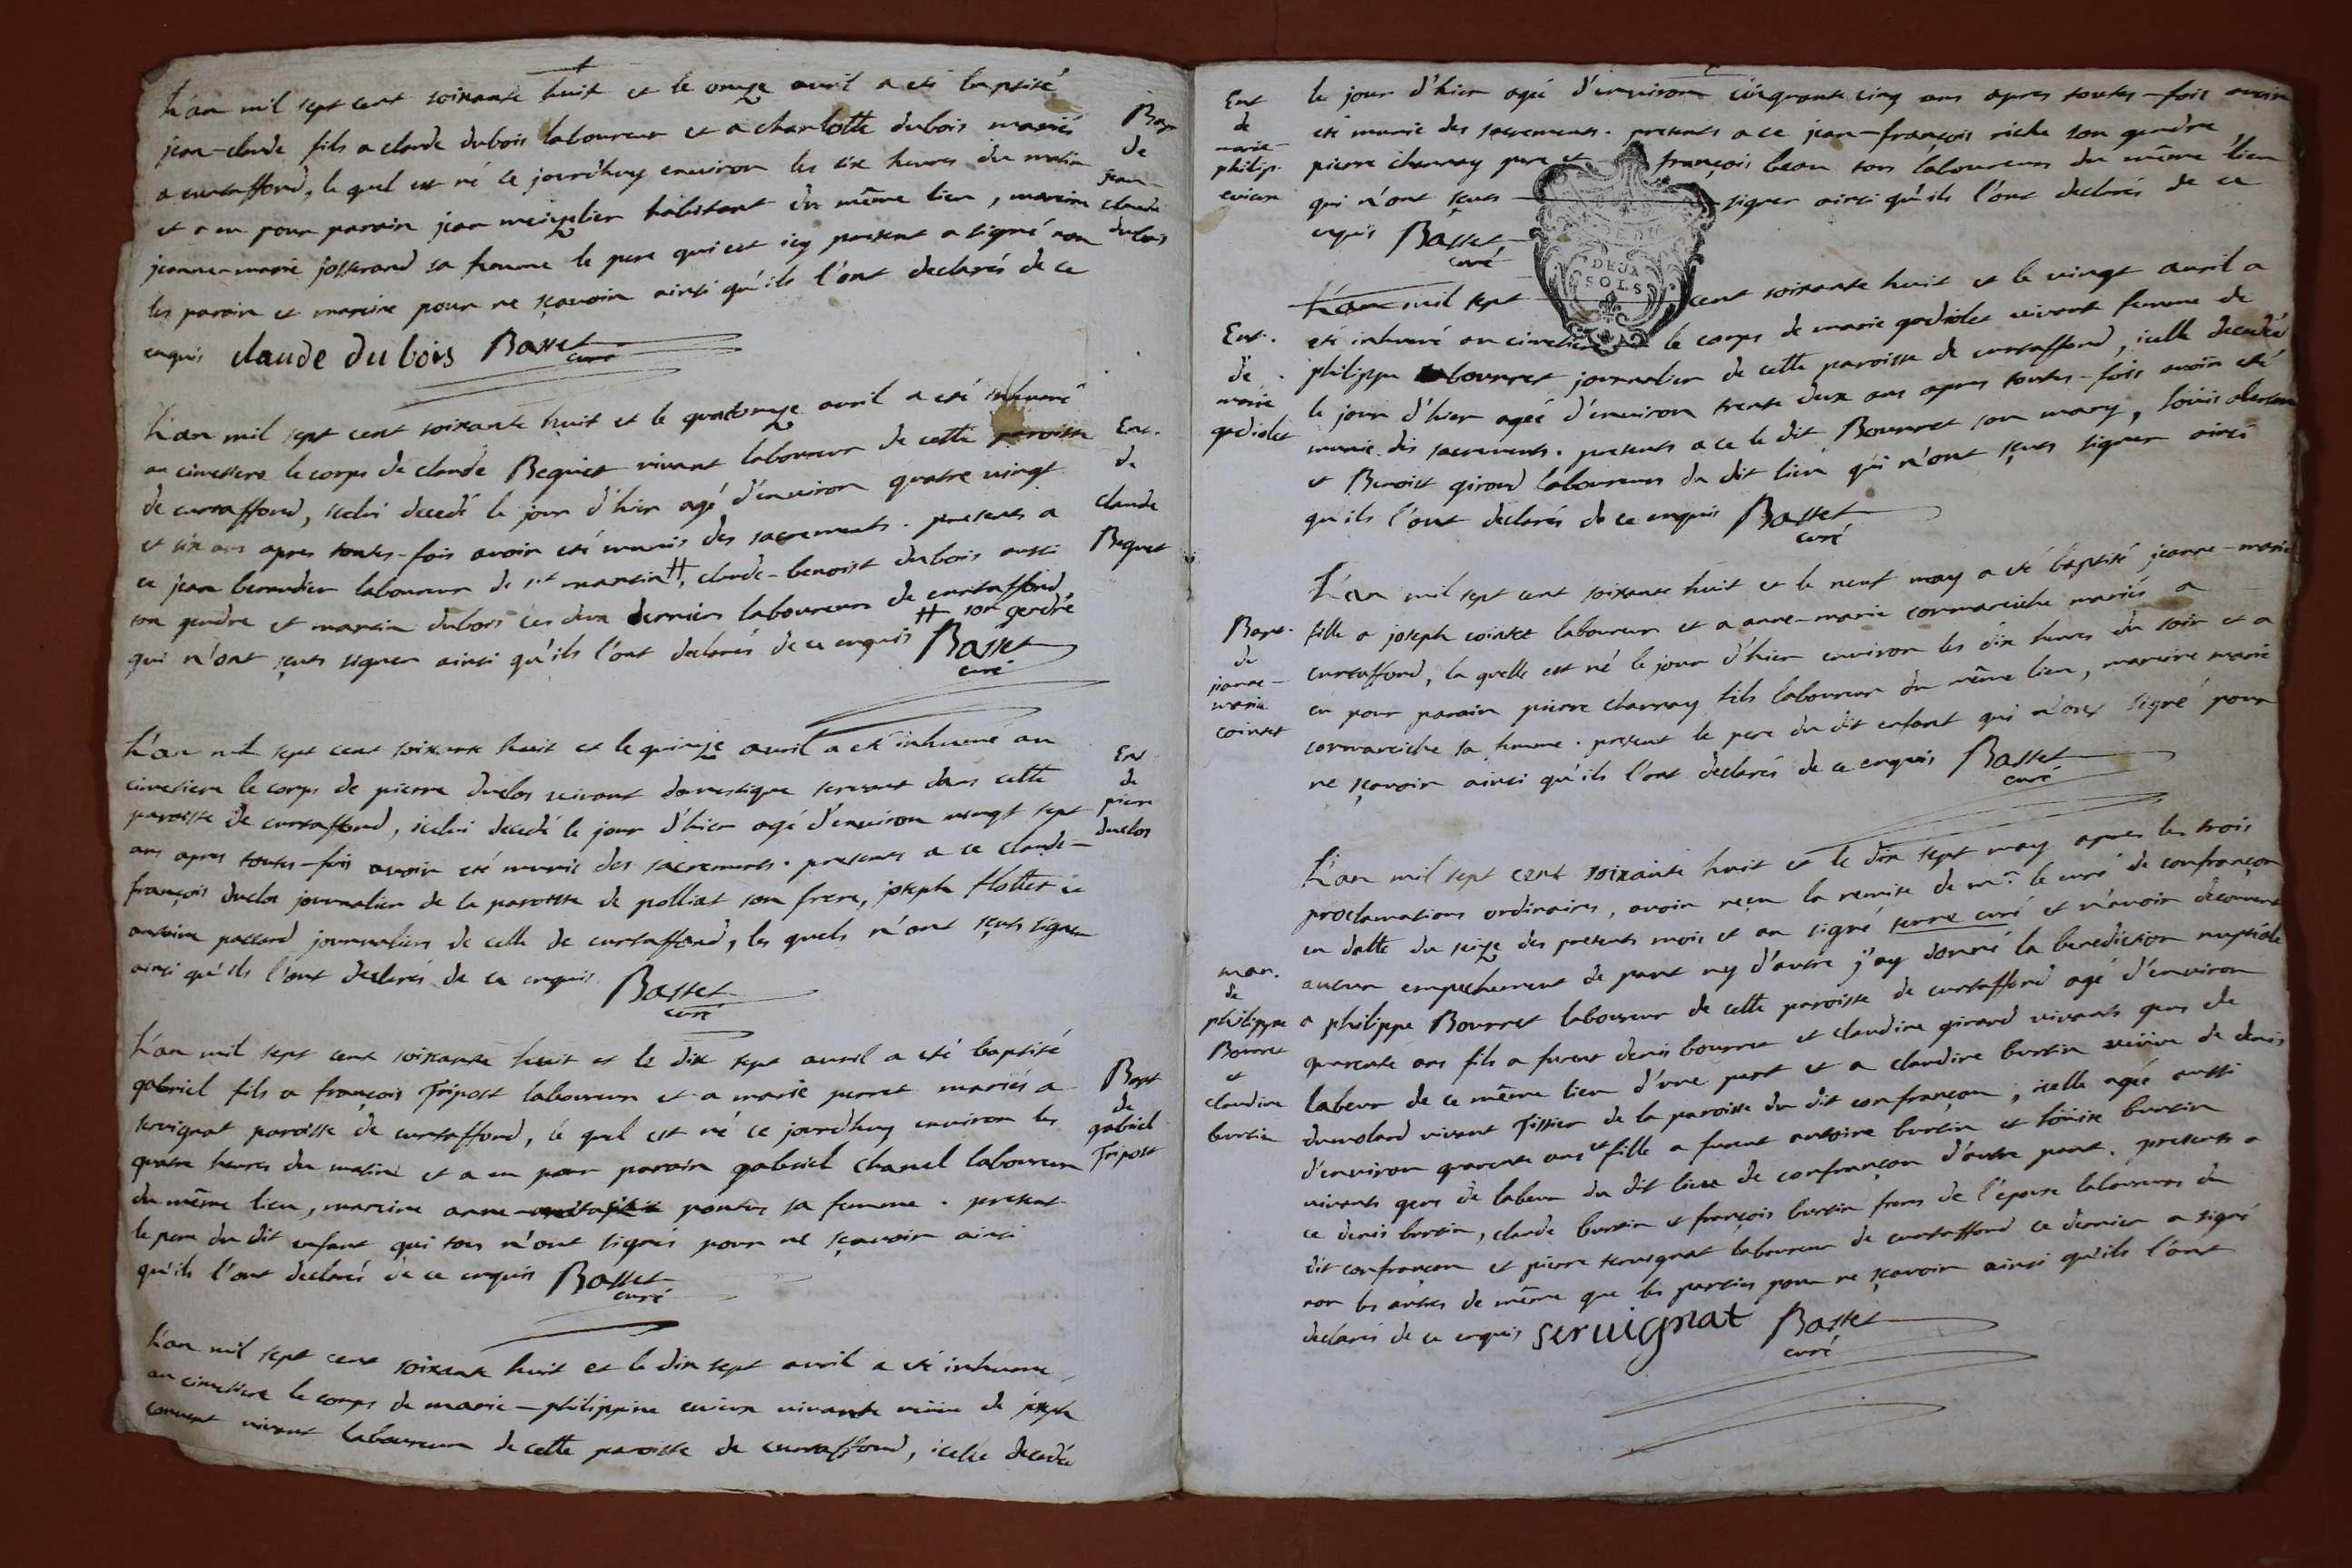 L'an mil sept cent soixante huit et le onze avril a eté baptisé
jean-claude fils a claude dubois laboureur et a charlotte dubois mariés
a curtaffond, le quel est né ce jourdhuy environ les six heures du matin
et a eu pour parain jean meizelier habitant du même lieu, mareine
jeanne-marie josserand sa femme le pere qui est icy present a signé non
les parain et mareine pour ne sçavoir ainsi qu'ils l'ont declarés de ce
enquis claude dubois Basset
curé
Bap
de
jean-
claude
dubois
L'an mil sept cent soixante huit et le quatorze avril a eté inhumé
au cimetiere le corps de claude Bequet vivant laboureur de cette paroisse
de curtaffond, icelui decedé le jour d'hier agé d'environ quatre vingt
et six ans apres toutes-fois avoir eté munis des sacrements. presents a
ce jean beraudier laboureur de st martin ++, claude-benoist dubois aussi
son gendre et martin dubois ces deux derniers laboureurs de curtaffond
++ son gendre
qui n'ont sçus signer ainsi qu'ils l'ont declarés de ce enquis Basset
curé
Ent.
de
claude
Bequet
L'an mil sept cent soixante huit et le quinze avril a eté inhumé au
cimetiere le corps de pierre duclos vivant domestique servant dans cette
paroisse de curtaffond, icelui decedé le jour d'hier agé d'environ vingt sept
ans apres toutes-fois avoir eté munis des sacrements. presents a ce claude-
françois duclos journalier de la paroisse de polliat son frere, joseph flottet et
antoine paccard journaliers de celle de curtaffond, les quels n'ont sçus signer
ainsi qu'ils l'ont declarés de ce enquis Basset
curé
Ent
de
pierre
duclos
L'an mil sept cent soixante huit et le dix sept avril a eté baptisé
gabriel fils a françois Tripost laboureur et a marie perret mariés a
servignat paroisse de curtaffond, le quel est né ce jourdhuy environ les
quatre heures du matin et a eu pour parain gabriel chanel laboureur
du même lieu, mareine anne pontus sa femme. present
le pere du dit enfant qui tous n'ont signés pour ne sçavoir ainsi
qu'ils l'ont declarés de ce enquis Basset
curé
Bapt
de
gabriel
Tripost
L'an mil sept cent soixante huit et le dix sept avril a eté inhumé
au cimetiere le corps de marie-philippine cuieux vivante veuve de joseph
convert vivant laboureur de cette paroisse de curtaffond, icelle decedée
Ent
de
marie-
philip.
cuieux
le jour d'hier agée d'environ cinquante cinq ans apres toutes-fois avoir
eté munie des sacrements. presents a ce jean-françois riche son gendre,
pierre charnay pere et françois beau tous laboureurs du même lieu
qui n'ont sçus signer ainsi qu'ils l'ont declarés de ce
enquis Basset
curé
DEUX
SOLS
L'an mil sept cent soixante huit et le vingt avril a
eté inhumé au cimetiere le corps de marie godiolet vivant femme de
philippe bourret journalier de cette paroisse de curtaffond, icelle decedée
le jour d'hier agée d'environ trente deux ans apres toutes-fois avoir eté
munie des sacrements. presents a ce le dit Bourret son mary, loüis
et Benoist giroud laboureurs du dit lieu qui n'ont sçus signer ainsi
qu'ils l'ont declarés de ce enquis Basset
curé
Ent.
de
marie
godiolet
L'an mil sept cent soixante huit et le neuf may a eté baptisé jeanne-marie
fille a joseph cointet laboureur et a anne-marie cormareiche mariés a
curtaffond, la quelle est né le jour d'hier environ les dix heures du soir et a
eu pour parain pierre charnay fils laboureur du même lieu, mareine marie
cormareiche sa femme. present le pere du dit enfant qui n'ont signé pour
ne sçavoir ainsi qu'ils l'ont declarés de ce enquis Basset
curé
Bapt.
de
jeanne-
marie
cointet
L'an mil sept cent soixante huit et le dix sept may apres les trois
proclamations ordinaires, avoir reçu la remise de mr. le curé de confrançon
en datte du seize des presents mois et an signé serre curé et n'avoir decouvert
aucun empechement de part ny d'autre j'ay donné la benediction nuptiale
a philippe Bourret laboureur de cette paroisse de curtaffond agé d'environ
quarente ans fils a furent denis bourret et claudine girard vivants gens de
labeur de ce même lieu d'une part et a claudine burtin veüve de denis
duvolard vivant Tissier de la paroisse du dit confrançon, icelle agée aussi
d'environ quarente ans et fille a furent antoine burtin et loüise burtin
vivants gens de labeur du dit lieu de confrançon d'autre part. presents a
ce denis burtin, claude burtin et françois burtin freres de l'epouse laboureurs du
dit confrançon et pierre servignat laboureur de curtaffond ce dernier a signé
non les autres de même que les parties pour ne sçavoir ainsi qu'ils l'ont
declarés de ce enquis seruignat Basset
curé
mar.
de
philippe
Bourret
et
claudine
burtin